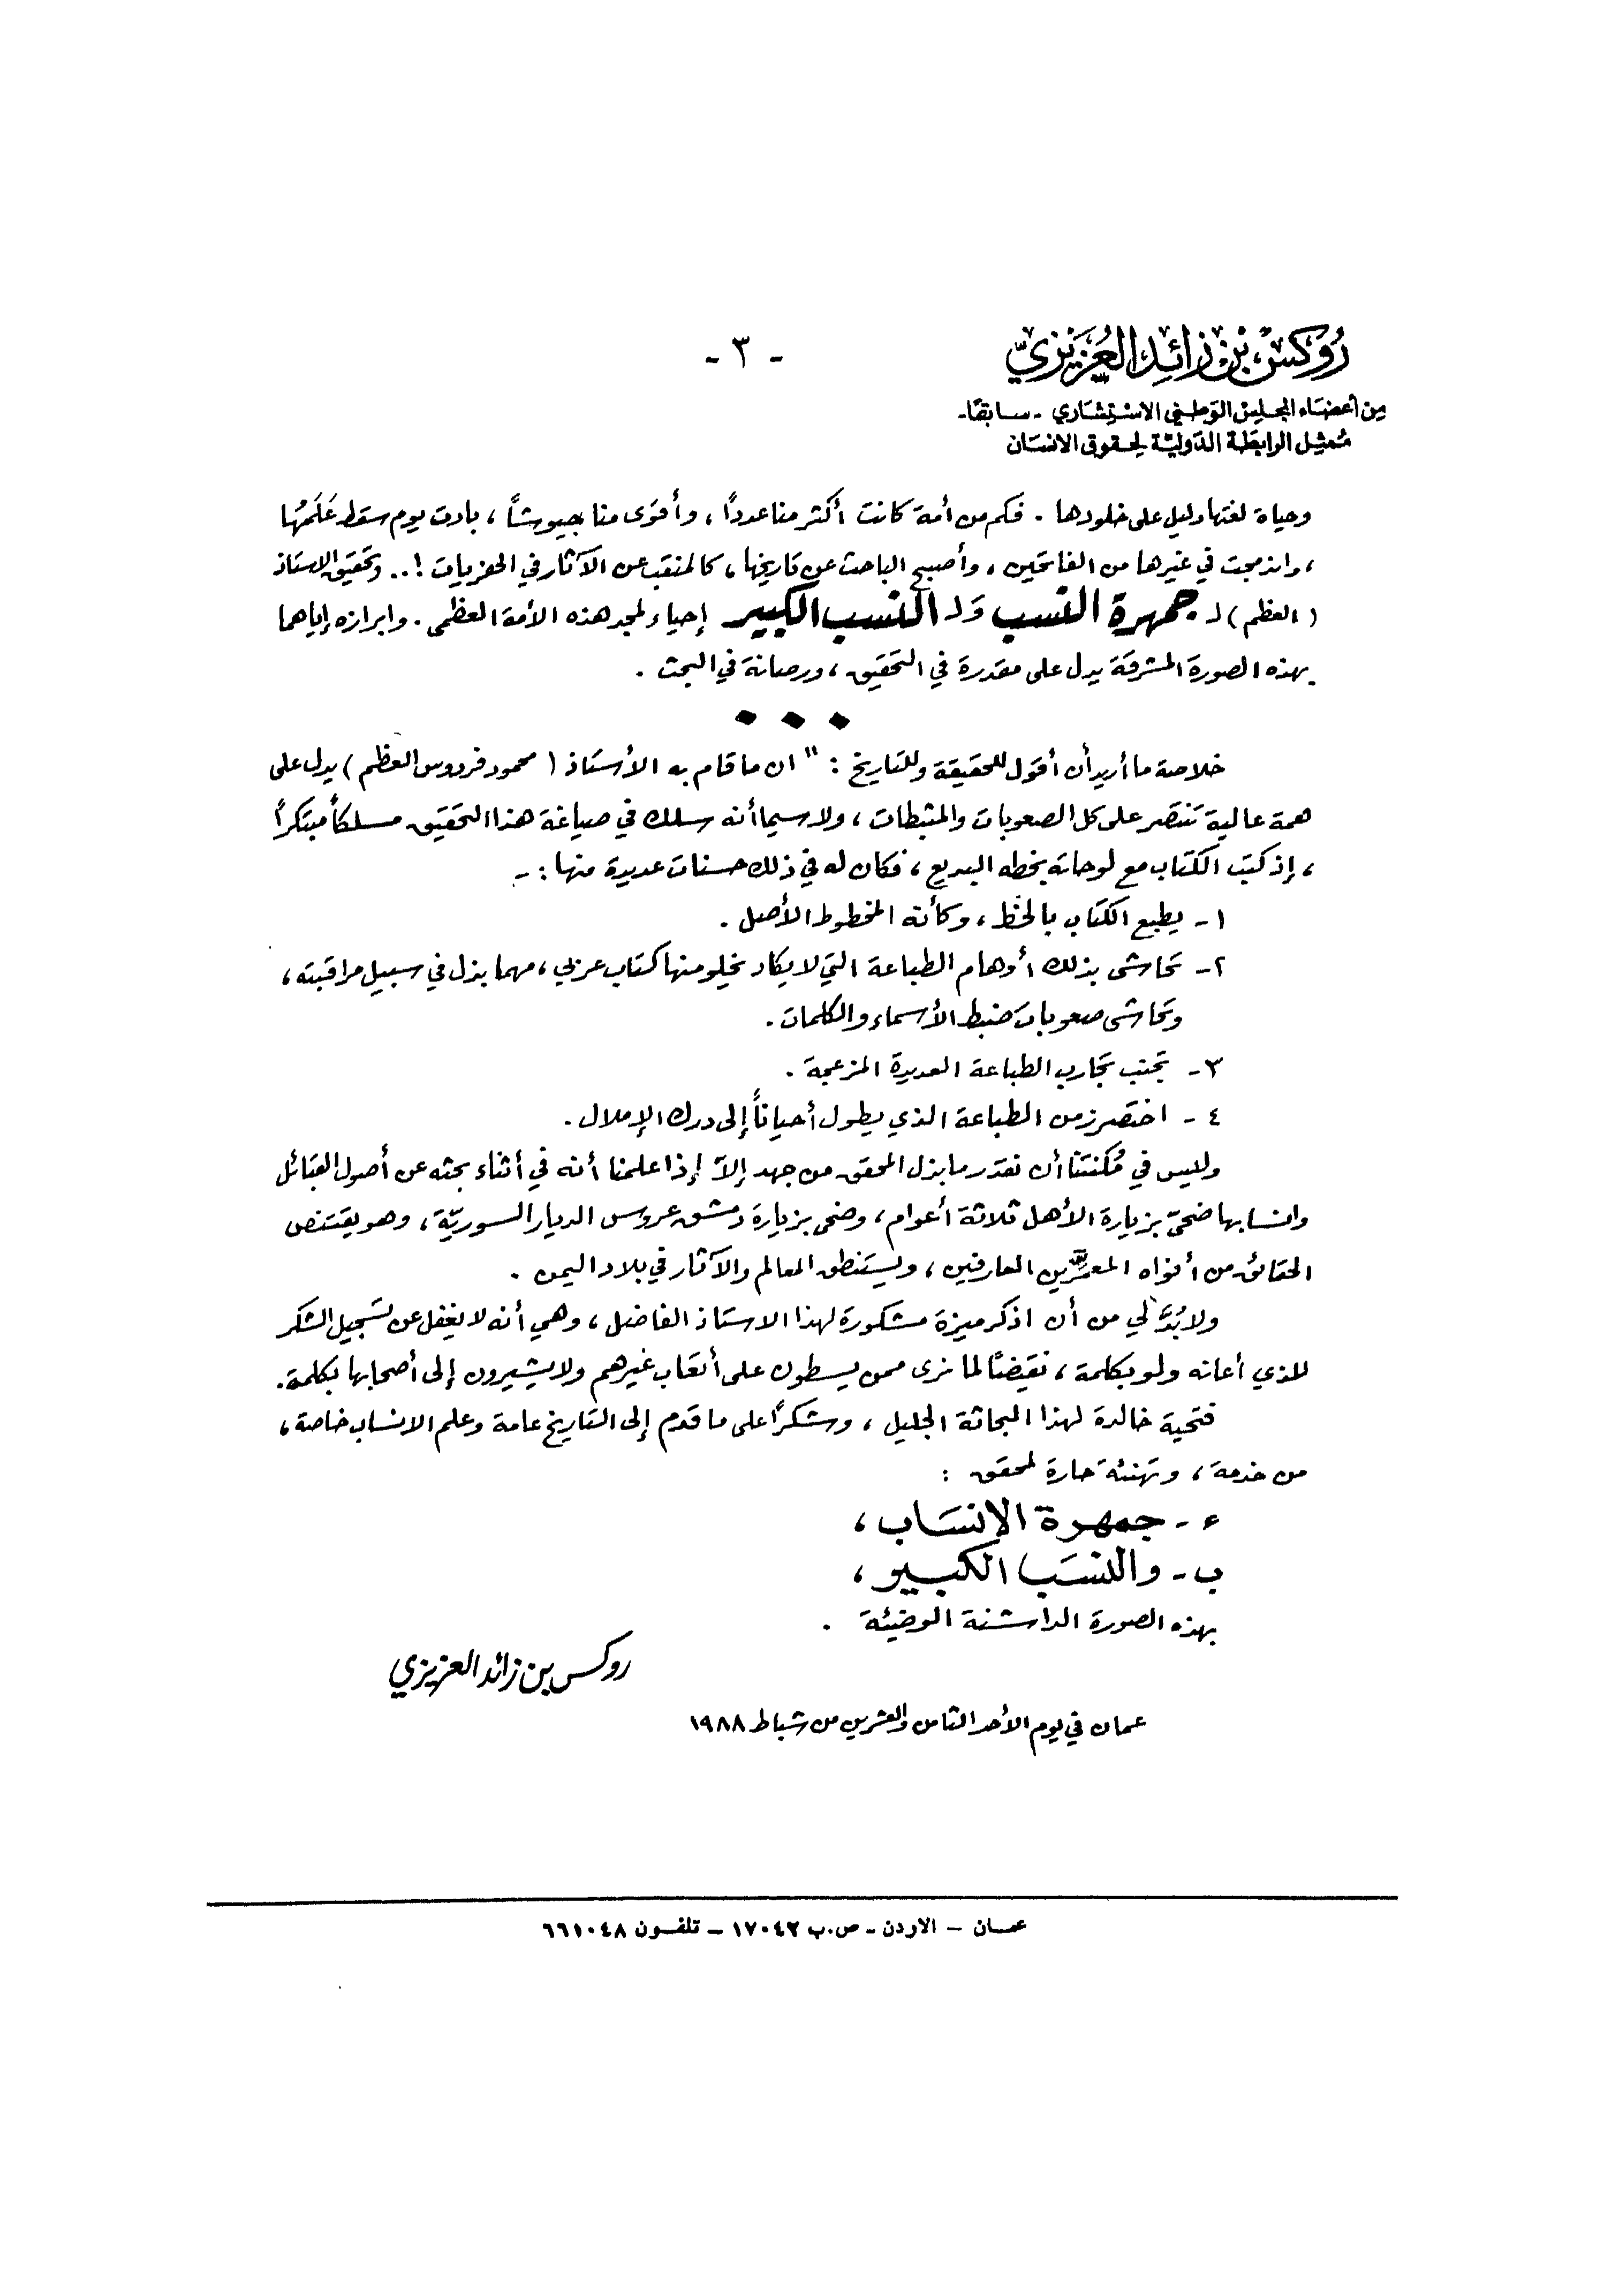 رُوكس بن زائد العُزيزيّ
- ٣ -
من أعضاء المجلس الوطني الاستشاري - سابقًا -
مُمثل الرابطة الدّوليّة لحقوق الانسان
وحياة لغتها دليل على خلودها . فكم من أمة كانت أكثر منا عدداً ، وأقوى منا جيوشاً ، بادت يوم سقط عَلَمُها
، واندمجت في غيرها من الفاتحين ، وأصبح الباحث عن تاريخها ، كالمنقب عن الآثار في الحفريات !.. وتحقيق الاستاذ
( العظم ) لـ جمهرة النسب وَلـ النسب الكبير إحياء لمجد هذه الأمة العظمى . وابرازه إياهما
بهذه الصورة المشرفة يدل على مقدرة في التحقيق ، ورصانة في البحث .
خلاصة ما أريد أن أقول للحقيقة وللتاريخ : " ان ما قام به الأستاذ ( محمود فردوس العظم ) يدل على
همة عالية تنتصر على كل الصعوبات والمثبطات ، ولا سيما أنه سلك في صياغة هذا التحقيق مسلكاً مبتكراً
، إذ كتب الكتاب مع لوحاته بخطه البديع ، فكان له في ذلك حسنات عديدة منها : -
١ - يطبع الكتاب بالخط ، وكأنه المخطوط الأصل .
٢ - تحاشى بذلك أوهام الطباعة التي لا يكاد يخلو منها كتاب عربي ، مهما بذل في سبيل مراقبته ،
وتحاشى صعوبات ضبط الأسماء والكلمات .
٣ - تجنب تجارب الطباعة العديدة المزعجة .
٤ - اختصر زمن الطباعة الذي يطول أحياناً إلى درك الإملال .
وليس في مُكنتنا أن نقدر ما بذل المحقق من جهد إلاّ إذا علمنا أنه في أثناء بحثه عن أصول القبائل
وانسابها ضحّى بزيارة الأهل ثلاثة أعوام ، وضحى بزيارة دمشق عروس الديار السوريّة ، وهو يقتنص
الحقائق من أفواه المعمّرين العارفين ، ويستنطق المعالم والآثار في بلاد اليمن .
ولا بُدَّ لي من أن اذكر ميزة مشكورة لهذا الاستاذ الفاضل ، وهي أنه لا يغفل عن تسجيل الشكر
للذي أعانه ولو بكلمة ، نقيضًا لما نرى ممن يسطون على أتعاب غيرهم ولا يشيرون إلى أصحابها بكلمة .
فتحية خالدة لهذا البحاثة الجليل ، وشكرًا على ما قدم إلى التاريخ عامة وعلم الانساب خاصة ،
من خدمة ، وتهنئة حارة لمحقق :
ء - جمهرة الانسَاب ،
ب - والنسَب الكبير ،
بهذه الصورة الداشنة الوضيئة .
روكس بن زائد العزيزي
عمان في يوم الأحد الثامن والعشرين من شباط ١٩٨٨
عمــان – الاردن – ص.ب ١٧٠٤٢ – تلفــون ٦٦١٠٤٨